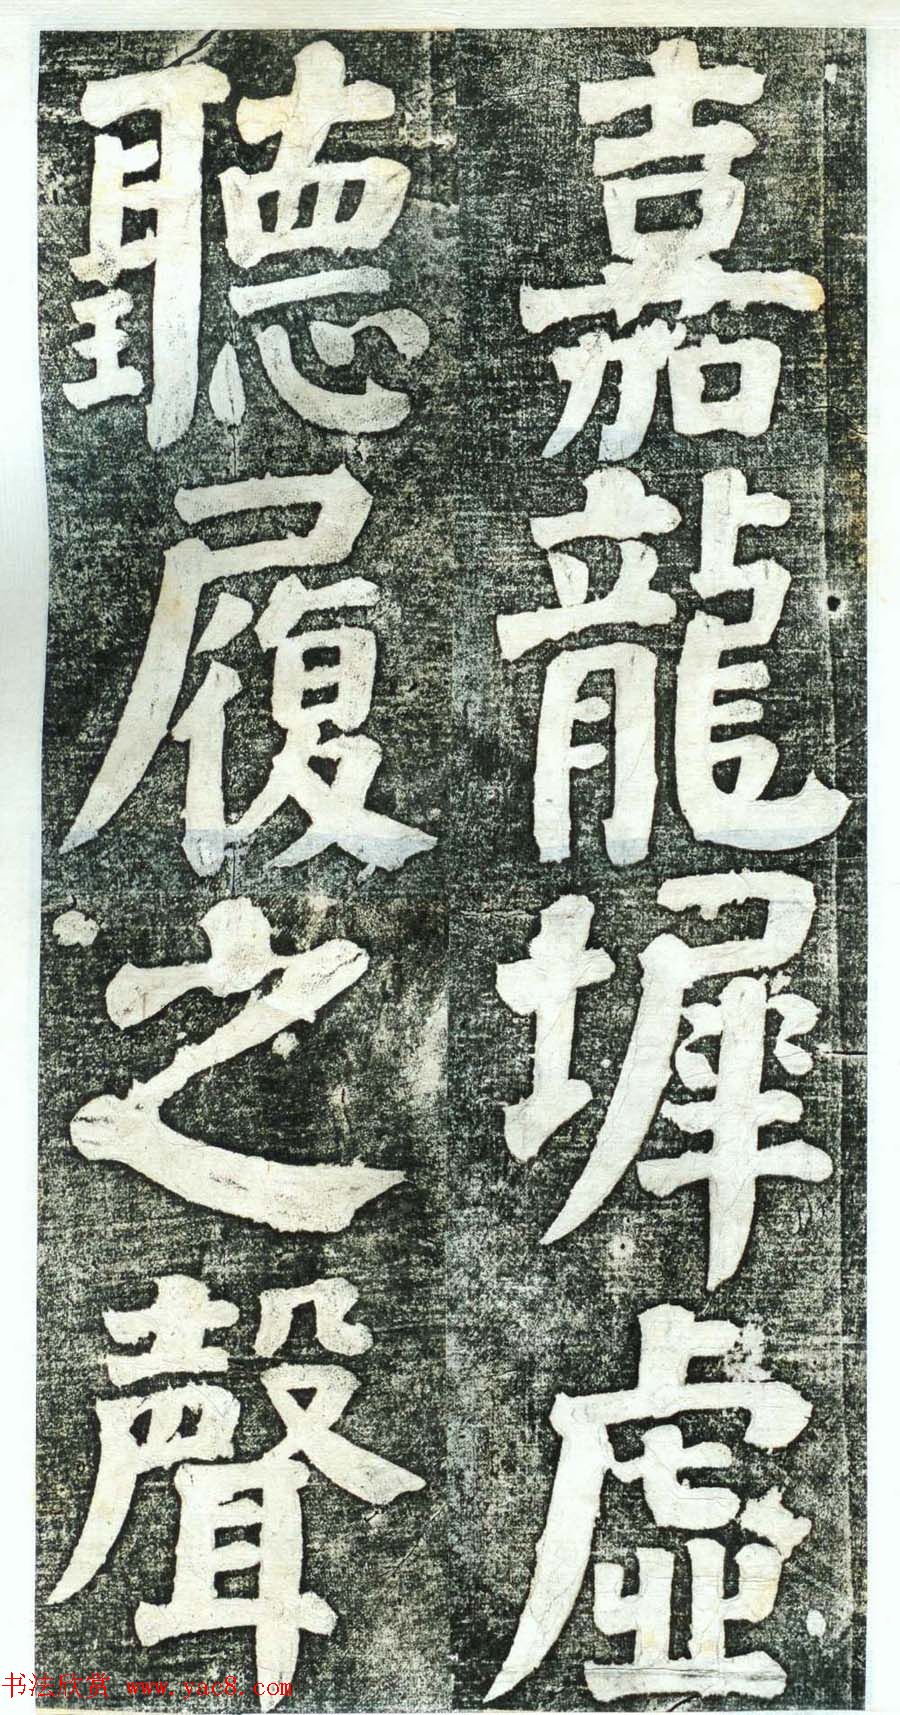 嘉龍墀虛
聽履之聲
书法欣赏 www.yac8.com